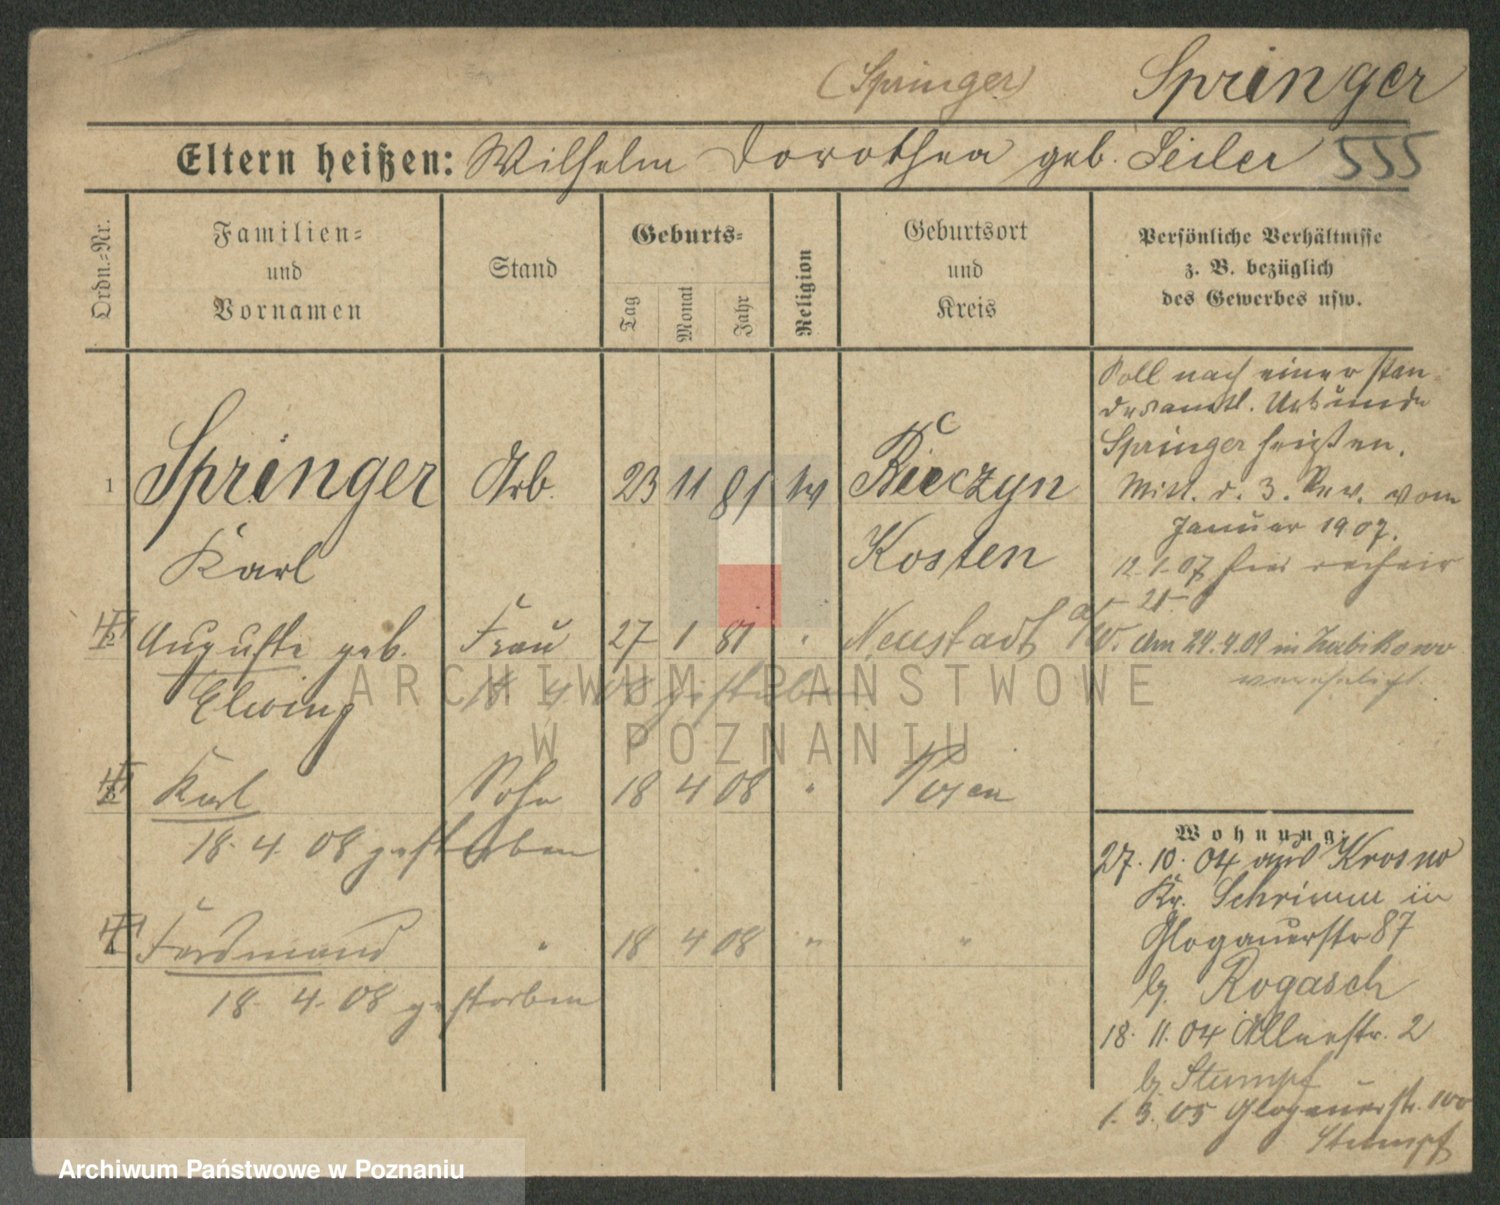 (Springer) Springer
Eltern heißen: Wilhelm Dorothea geb. Seiler 555
Ordn.=Nr.
Familien=
und
Vornamen
Stand
Geburts=
Tag
Monat
Jahr
Religion
Geburtsort
und
Kreis
Persönliche Verhältnisse
z. B. bezüglich
des Gewerbes usw.
Soll nach einer stan
desamtl. Urkunde
Springer heißen.
Mitt. d. 3. Rev. vom
Januar 1907.
12.1.07
1 Springer Arb. 23 11 81 ev Bieczyn
Karl Kosten
2 Auguste geb. Frau 27 1 81 " Neustadt
Am 24.4.09 in Zabikowo
verehelicht.
Elwing 18 4 08 gestorben
3 Karl Sohn 18 4 08 " Posen
18. 4. 08 gestorben
4 Ferdinand " 18 4 08 " "
18. 4. 08 gestorben
Wohnung:
27. 10. 04 aus Krosno
Kr. Schrimm in
Glogauerstr 87
bj. Rogasch
18. 11. 04 Alleestr. 2
bj Stumpf
1. 3. 05 Glogauerstr. 100
Stumpf
ARCHIWUM PAŃSTWOWE
W POZNANIU
Archiwum Państwowe w Poznaniu